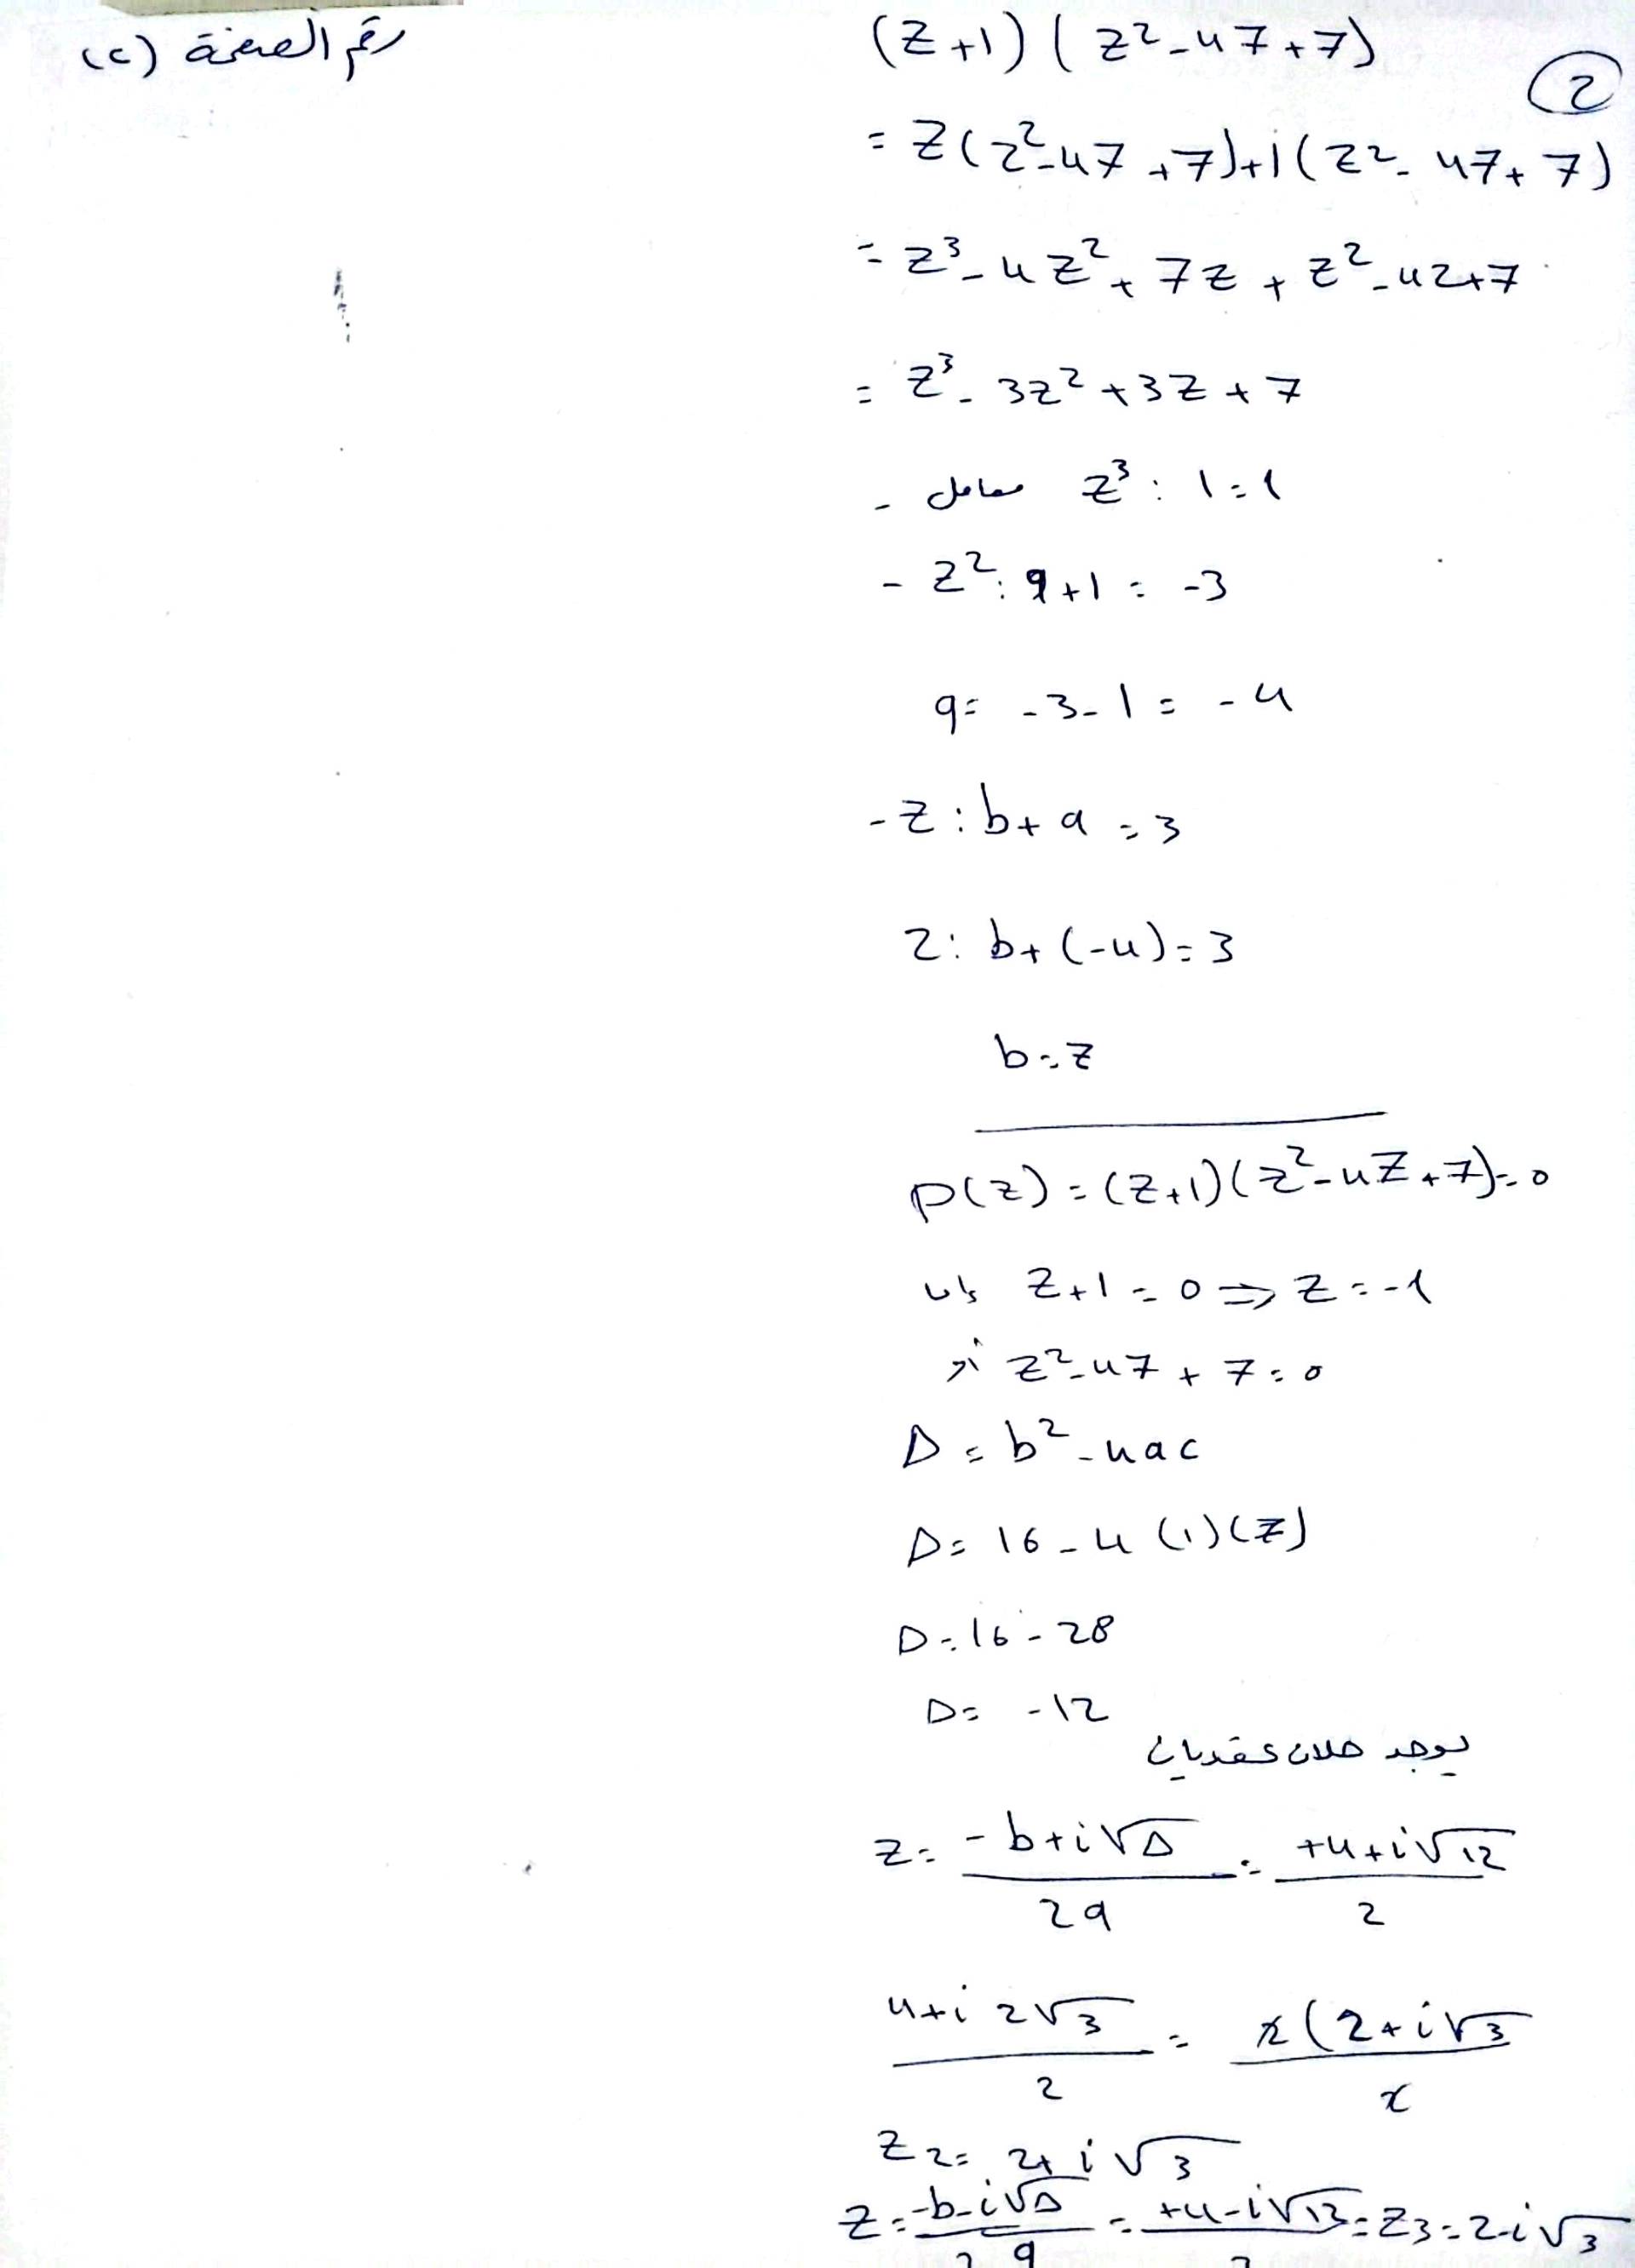 رقم الصفحة (٢)
(2)
(z+1)(z²-4z+7)
= z(z²-4z+7)+1(z²-4z+7)
= z³-4z²+7z+z²-4z+7
= z³-3z²+3z+7
- معامل z³ : 1=1
- z² : a+1 = -3
a = -3-1 = -4
- z : b+a = 3
z : b+(-4) = 3
b = 7
p(z) = (z+1)(z²-4z+7) = 0
إما z+1 = 0 ⇒ z = -1
أو z²-4z+7 = 0
Δ = b²-4ac
Δ = 16-4(1)(7)
Δ = 16-28
Δ = -12
يوجد حلان عقديان
z = (-b+i√Δ)/2a = (+4+i√12)/2
(4+i2√3)/2 = 2(2+i√3/2
z2 = 2+i√3
z = (-b-i√Δ)/2a = (+4-i√12)/2 = z3 = 2-i√3